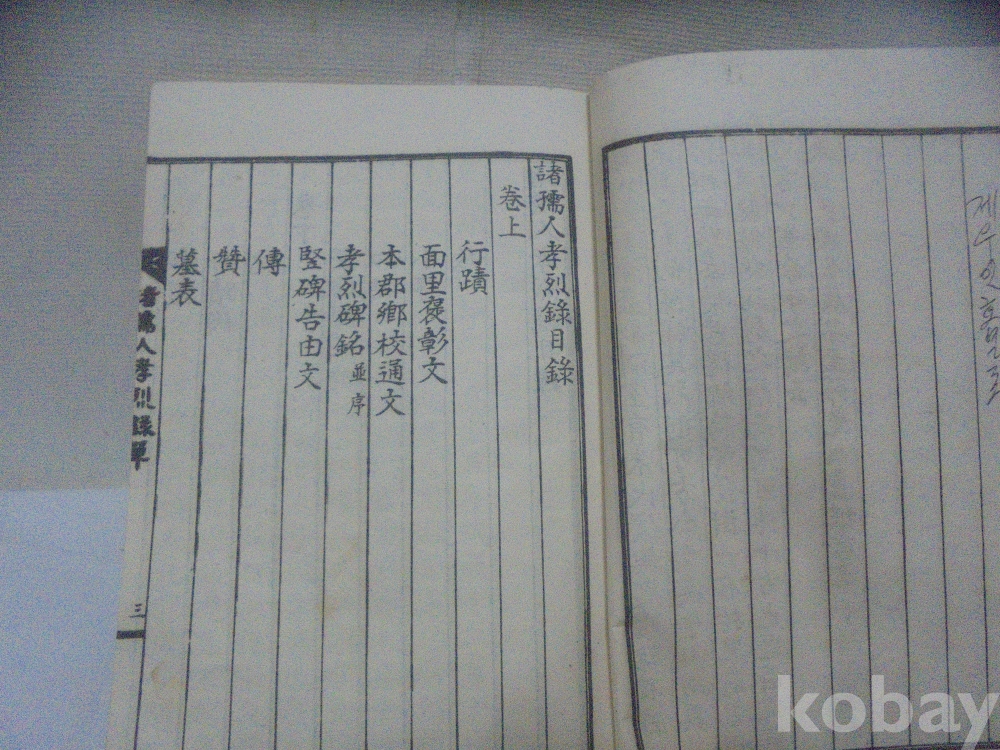 제유인효열록
諸孺人孝烈錄目錄
卷上
行蹟
面里褒彰文
本郡鄉校通文
孝烈碑銘 並序
竪碑告由文
傳
贊
墓表
諸孺人孝烈錄單
三
kobay